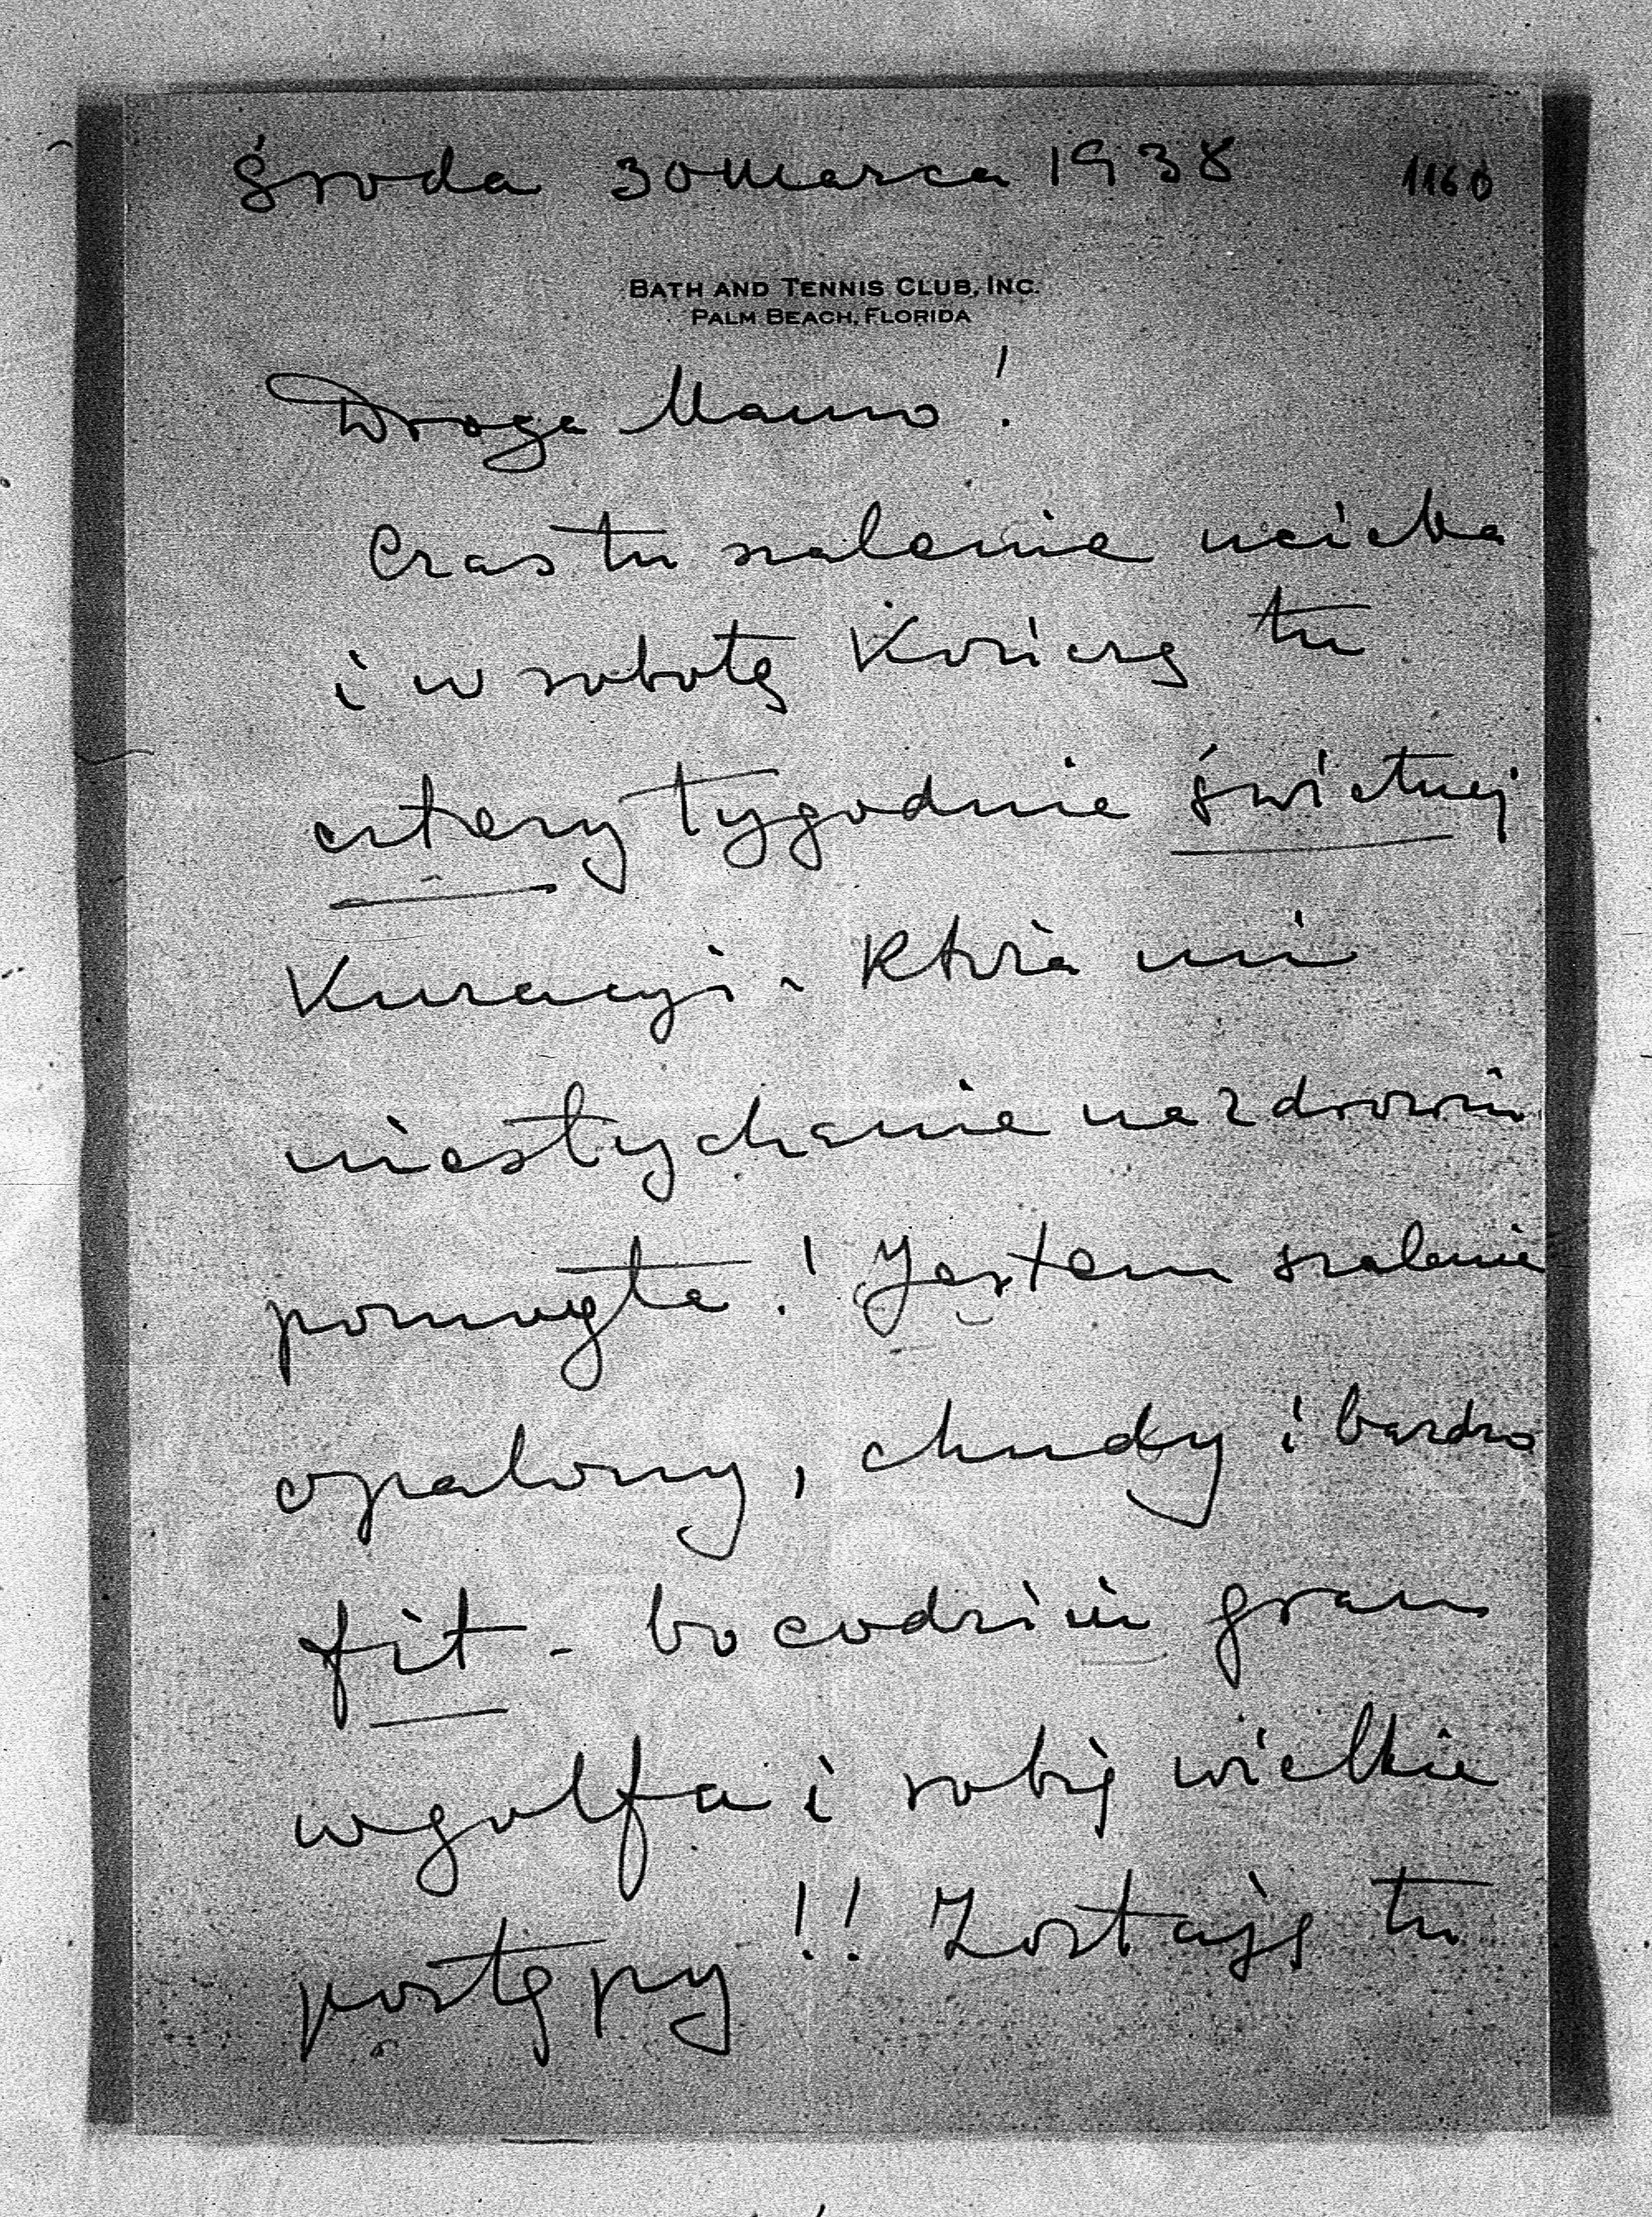 Środa 30 Marca 1938 1160
BATH AND TENNIS CLUB, INC.
PALM BEACH, FLORIDA
Droga Mamo!
Czas tu szalenie ucieka
i w sobotę Kończę tu
cztery tygodnie świetnej
Kuracyi - Która mi
niesłychanie na zdrowiu
pomogła! Jestem szalenie
opalony, chudy i bardzo
fit - bo codzień gram
w golfa i robię wielkie
postępy!! Zostaję tu